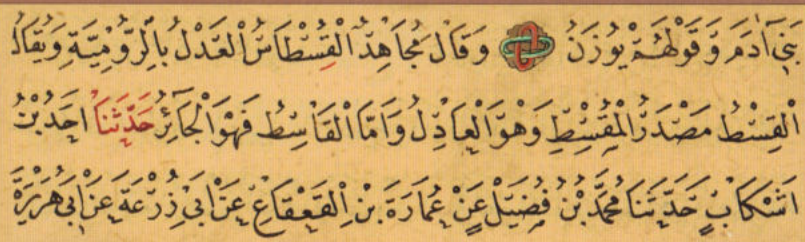 بَنِي آدَمَ وَقَوْلَهُمْ يُوزَنُ وَقَالَ مُجَاهِدٌ الْقُسْطَاسُ الْعَدْلُ بِالرُّومِيَّةِ وَيُقَالُ
الْقِسْطُ مَصْدَرُ الْمُقْسِطِ وَهُوَ الْعَادِلُ وَاَمَّا الْقَاسِطُ فَهُوَ الْجَائِرُ حَدَّثَنَا اَحْمَدُ بْنُ
اَشْكَابٍ حَدَّثَنَا مُحَمَّدُ بْنُ فُضَيْلٍ عَنْ عُمَارَةَ بْنِ الْقَعْقَاعِ عَنْ اَبِي زُرْعَةَ عَنْ اَبِي هُرَيْرَةَ